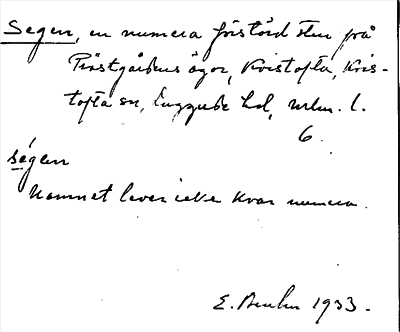 Segen, en numera förstörd sten på
Prästgårdens ägor, Kvistofta, Kvis-
tofta sn, Luggude hd, Mlm. l.
6.
ségen
Namnet lever icke kvar numera.
E. 1933.